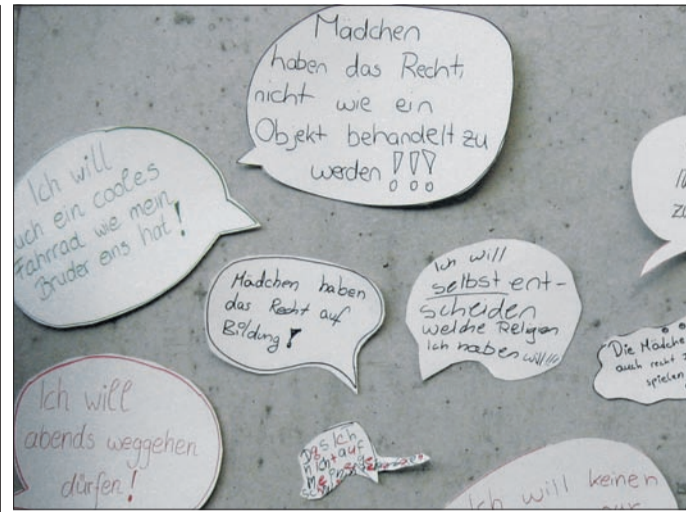 Mädchen
haben das Recht,
nicht wie ein
Objekt behandelt zu
werden!!!
Ich will
uch ein cooles
Fahrrad wie mein
Bruder eins hat!
Mädchen haben
das Recht auf
Bildung!
Ich will
selbst ent-
scheiden
welche Religion
ich haben will!!!
Die Mädche
auch recht
spielen
Ich will
abends weggehen
dürfen!
Das ich
nicht auf
Ich will keinen